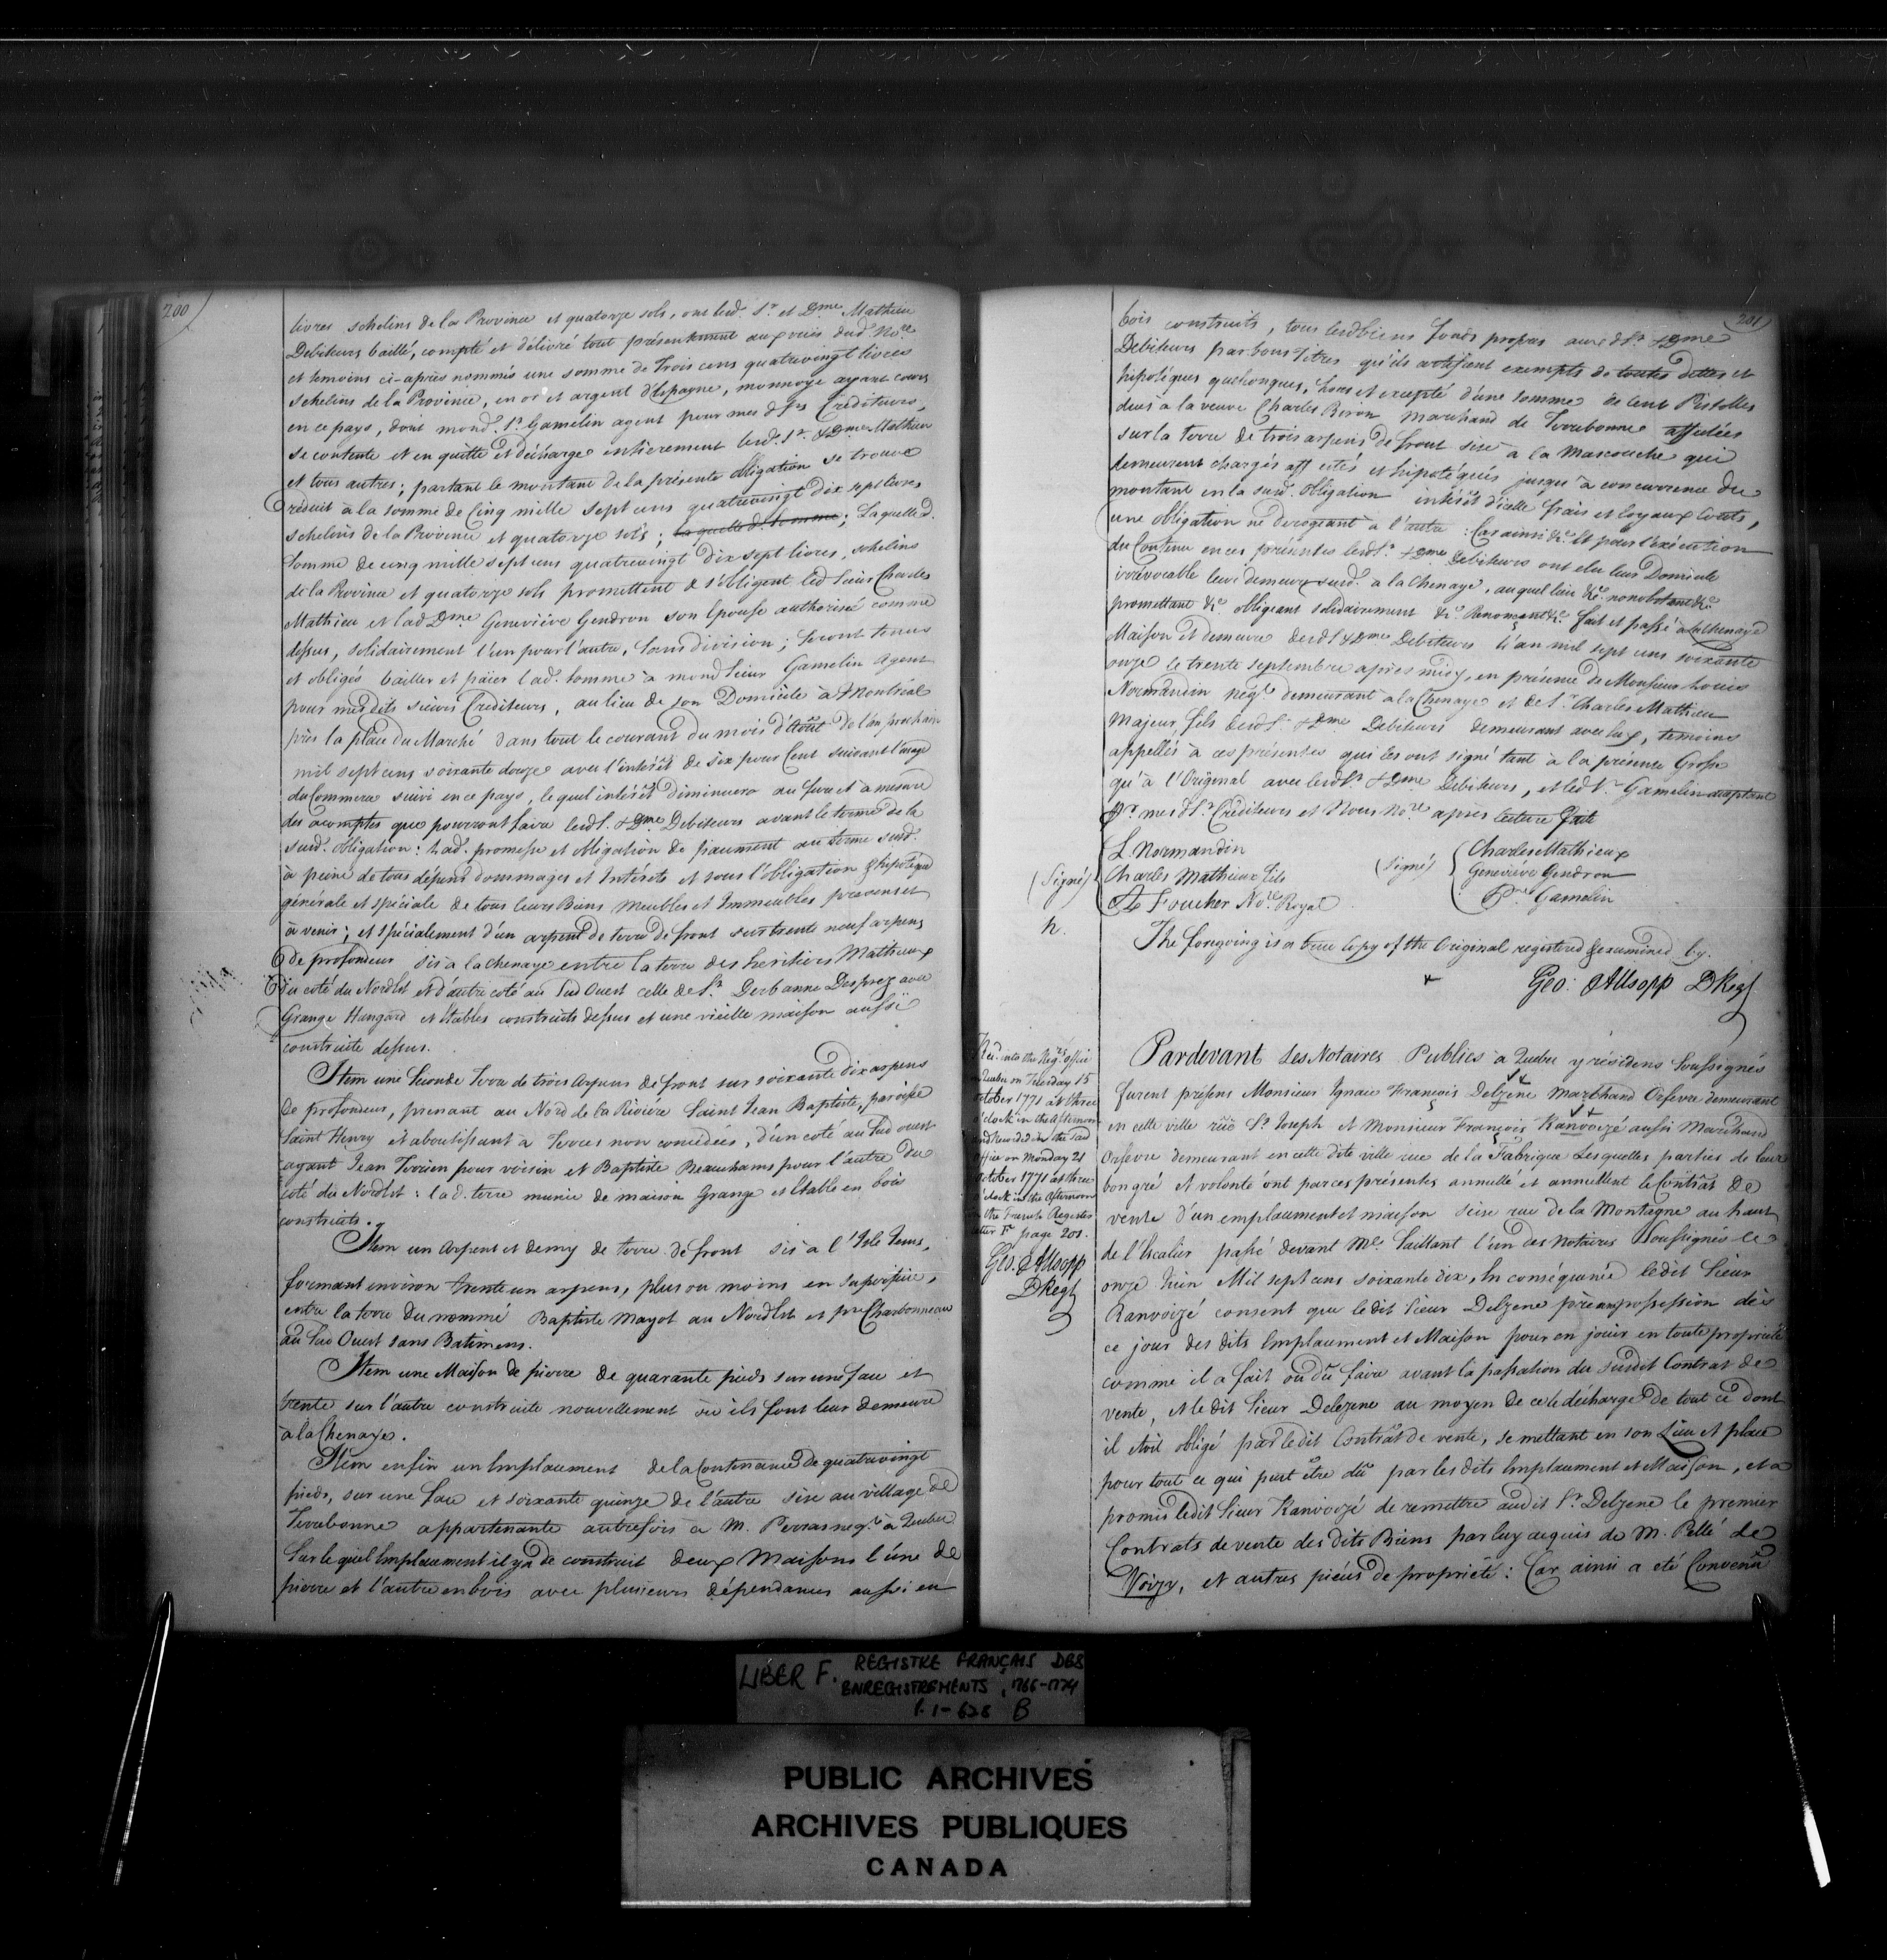 200
livres schelins de la Province et quatorze sols, ont lesd. Sr. et Dme. Mathieu
Debiteurs baillé, compté et délivré tout présentement aux vües dud. Nore.
et temoins ci-après nommés une somme de Trois cens quatrevingt livres
schelins de la Province, en or et argent d'Espagne, monnoye ayant cours
en ce pays, dont mond. Sr. Gamelin agent pour mes d. Srs. Créditeurs,
se contente et en quitte et décharge entièrement lesd. Sr. & Dme. Mathieu
et tous autres; partant le montant de la présente obligation se trouve
réduit à la somme de Cinq mille sept cens quatrevingt dix sept livres
schelins de la Province et quatorze sols; la quelle d. somme; Laquelle d.
Somme de cinq mille sept cens quatrevingt dix sept livres, schelins
de la Province et quatorze sols promettent & s'obligent led. Sieur Charles
Mathieu et lad. Dme. Geneviève Gendron son Epouse authorisée comme
dessus, solidairement l'un pour l'autre, sans division; seront tenus
et obligés bailler et païer lad. somme à mond. Sieur Gamelin Agent
pour mesdits sieurs Crediteurs, au lieu de son Domicile à Montréal
près la place du Marché dans tout le courant du mois d'Août de l'an prochain
mil sept cens soixante douze avec l'intérêt de six pour Cent suivant l'usage
du Commerce suivi en ce pays, le quel intérêt diminuera au fur et à mesure
des acomptes que pourront faire lesd. S. & Dme. Debiteurs avant le terme de la
susd. obligation: Lad. promesse et obligation de païement au terme susd.
à peine de tous dépens dommages et Intérêts et sous l'obligation & hipotèque
générale et spéciale de tous leurs Biens Meubles et Immeubles présens et
à venir; et spécialement d'un arpent de terre de front sur trente neuf arpens
de profondeur sis à la Chenaye entre la terre des heritiers Mathieux
du coté du Nordest et d'autre coté au Sud Ouest celle de Sr. Derbanne Desprez avec
Grange Hangard et étables construits dessus et une vieille maison aussi
construite dessus.
Item une Seconde Terre de trois Arpens de front sur soixante dix arpens
de profondeur, prenant au Nord de la Rivière Saint Jean Baptiste, paroisse
Saint Henry et aboutissant à Terres non concedées, d'un coté au Sud ouest
ayant Jean Terrien pour voisin et Baptiste Beauchams pour l'autre du
coté du Nordest: lad. terre munie de maison Grange et Etable en bois
construits.
Item un Arpent et demy de terre de front sis à l'Isle Jesus,
formant environ trente un arpens, plus ou moins en superficie,
entre la terre du nommé Baptiste Mayot au Nordest et pre. Charbonneau
au Sud Ouest sans Batimens.
Item une Maison de pierre de quarante pieds sur une face et
trente sur l'autre construite nouvellement où ils font leur demeure
à la Chenaye.
Item enfin un Emplacement de la Contenance de quatrevingt
pieds, sur une face et soixante quinze de l'autre sise au village de
Terrebonne appartenante autrefois à M. Perras negt. à Quebec
Sur le quel Emplacement il y a de construit deux Maisons l'une de
pierre et l'autre en bois avec plusieurs dépendances aussi en
201
bois construits, tous lesd. biens fonds propres auxd. Sr. & Dme
Debiteurs par bons Titres qu'ils certifient exempts de toutes dettes et
hipotèques quelconques, hors et excepté d'une somme de Cent Pistolles
deus à la veuve Charles Biron Marchand de Terrebonne affectées
sur la Terre de trois arpens de front sise à la Mascouche qui
demeurent chargés affectés et hipotéqués jusqu'à concurrence du
montant en la susd. obligation intérêt d'icelle frais et loyaux Couts,
une obligation ne derogeant à l'autre: Car ainsi &c. Et pour l'exécution
du Contenu en ces présentes lesd. Sr. & Dme. debiteurs ont elu leur Domicile
irrévocable leur demeure susd. à la Chenaye, auquel lieu &c. nonobstant &c.
promettant &c. obligeant solidairement &c. Renonçant &c. fait et passé à la Chenaye
Maison et demeure desd. S. & Dme Debiteurs l'an mil sept cens soixante
onze le trente septembre après midy, en présence de Monsieur Louis
Normandin negt. demeurant à la Chenaye et de Sr. Charles Mathieu
majeur fils desd. Sr. & Dme Debiteurs demeurant avec lux, temoins
appellés à ces présentes qui les ont signé tant à la présente Grosse
qu'à l'Original avec lesd. Sr. & Dme Debiteurs, et led. Sr. Gamelin acceptant
Pr. mes d. Srs. Créditeurs et Nous Nore. après lecture faite
(Signé)
L. Normandin
Charles Mathieux fils
A Foucher Nore. Royal
(signé)
Charles Mathieux
Geneviève Gendron
Pre. Gamelin
h.
The foregoing is a true Copy of the Original registered & examined by.
Geo: Allsopp DRegr
Recd. into the Regrs. office
Quebec on Tuesday 15
October 1771 at three
o'clock in the afternoon
and Recorded in the said
Office on Monday 21
October 1771 at three
o'clock in the Afternoon
in the French Register
letter F. page 201.
Geo. Allsopp
DRegr
Pardevant Les Notaires Publics à Quebec y résidens Soussignés
furent présens Monsieur Ignace François Delzene Marchand Orfevre demeurant
en cette ville rüe St. Joseph et Monsieur François Ranvoizé aussi Marchand
Orfevre demeurant en cette dite ville rue de la Fabrique Lesquelles parties de leur
bon gré et volonté ont par ces présentes annullé et annullent le Contrat de
vente d'un emplacement et maison sise rue de la Montagne au haut
de l'Escalier passé devant Me. Saillant l'un des Notaires Soussignés le
onze Juin Mil sept cens soixante dix, En conséquence ledit Sieur
Ranvoizé consent que ledit Sieur Delzene prenne possession dès
ce jour des dits Emplacement et Maison pour en jouir en toute propriété
comme il a fait ou dû faire avant la passation du susdit Contrat de
vente, et le dit Sieur Delezene au moyen de ce le décharge de tout ce dont
il étoit obligé par ledit Contrat de vente, se mettant en son Lieu et place
pour tout ce qui peut être dû par les dits Emplacement et Maison, et a
promis ledit Sieur Ranvoyzé de remettre audit Sr. Delzene le premier
Contrats de vente des dits Biens par luy acquis de M. Pellé de
Voizy, et autres pièces de propriété: Car ainsi a eté Convenu
LIBER F. REGISTRE FRANÇAIS DES
ENREGISTREMENTS, 1766-1774
P. 1-628 B
PUBLIC ARCHIVES
ARCHIVES PUBLIQUES
CANADA